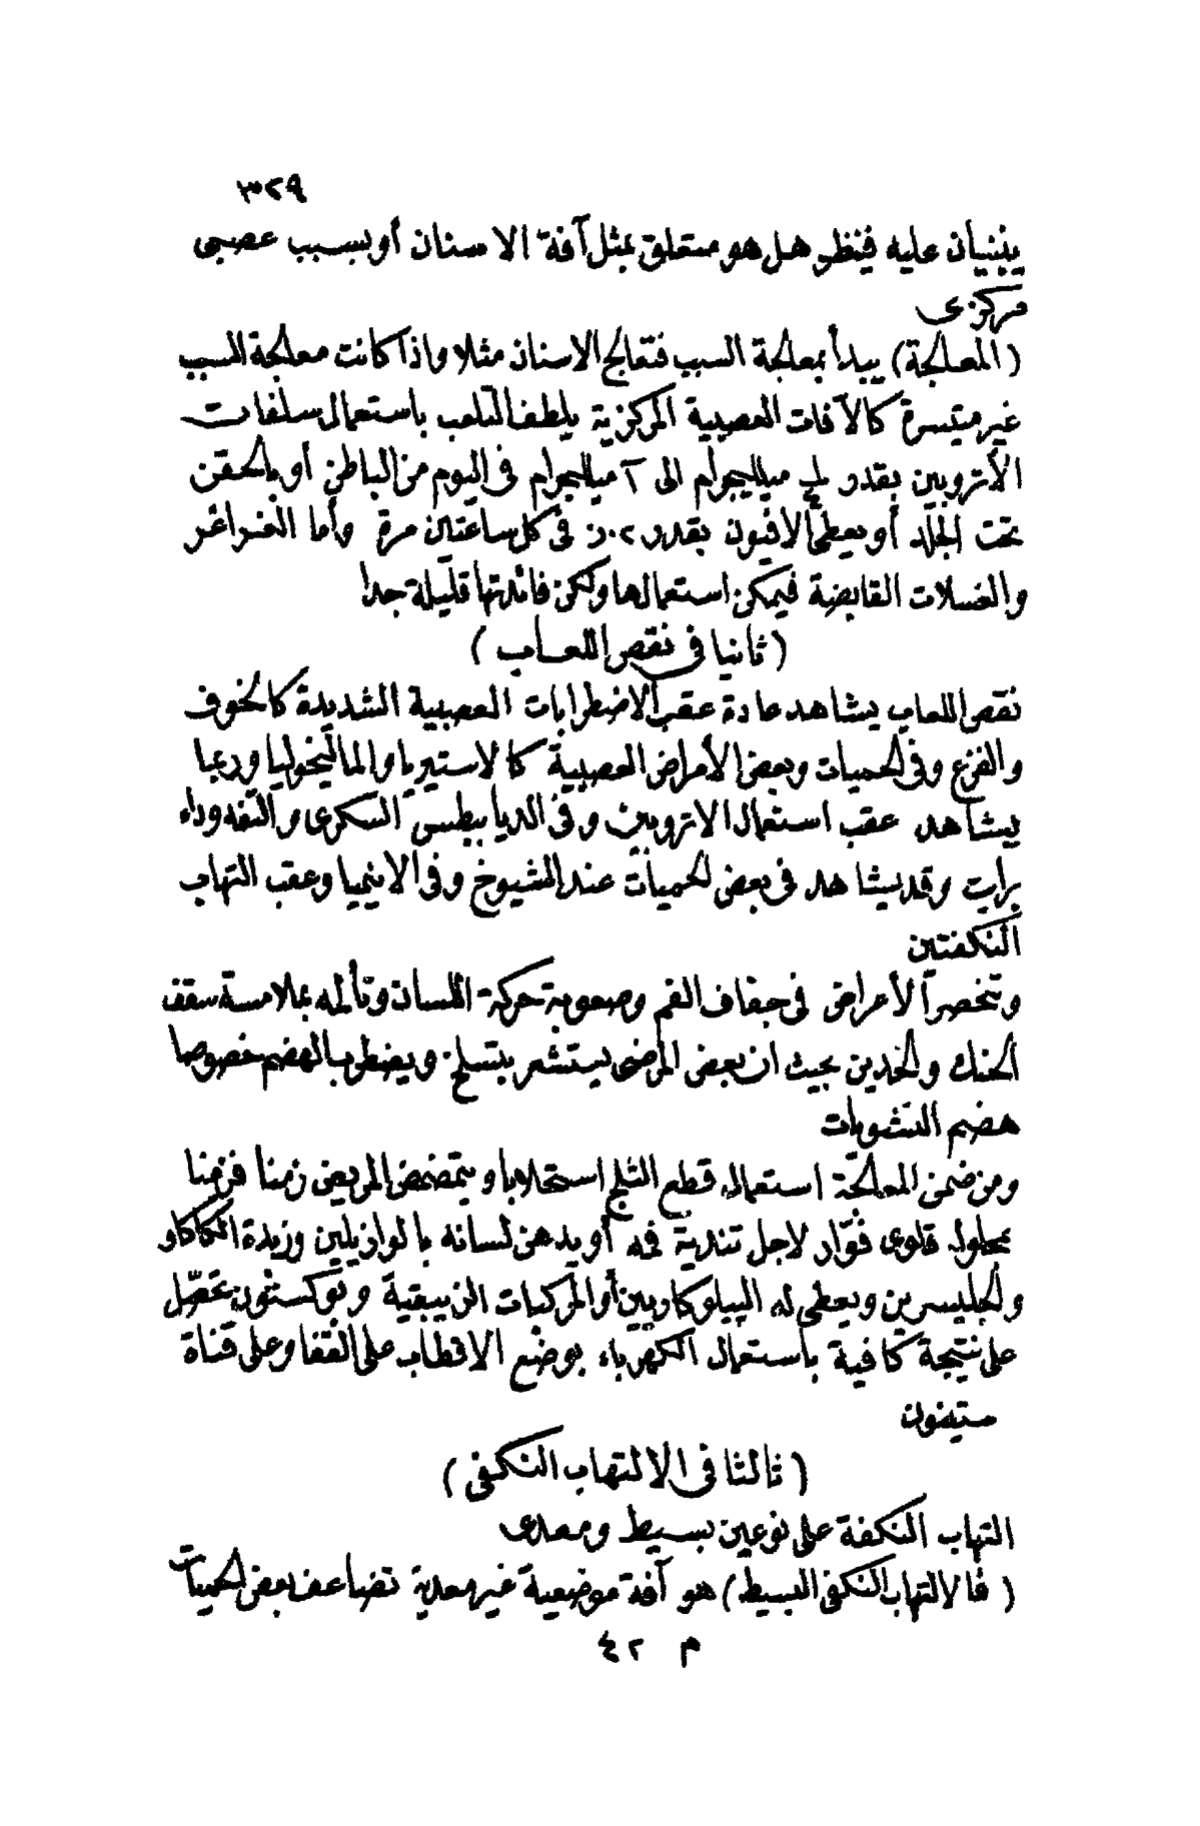 ٣٢٩
ينبنيان عليه فينظر هل هو متعلق بمثل آفة الاسنان أو بسبب عصبى
مركزى
(المعالجة) يبدأ بمعالجة السبب فتعالج الاسنان مثلا واذا كانت معالجة السبب
غير متيسرة كالآفات العصبية المركزية يلطف التلعب باستعمال سلفات
الأتروبين بقدر ميلليجرام الى ٢ ميلليجرام فى اليوم من الباطن أو بالحقن
تحت الجلد أو يعطى الافيون بقدر ٠٢ر٠ فى كل ساعتين مرة وأما الغراغر
والغسلات القابضة فيمكن استعمالها ولكن فائدتها قليلة جدا
(ثانيا فى نقص اللعاب)
نقص اللعاب يشاهد عادة عقب الاضطرابات العصبية الشديدة كالخوف
والفزع وفى الحميات وبعض الأمراض العصبية كالاستيريا والماليخوليا وربما
يشاهد عقب استعمال الاتروبين وفى الديابيطس السكرى والتفه وداء
برايت وقد يشاهد فى بعض الحميات عند الشيوخ وفى الانيميا وعقب التهاب
النكفتين
وتنحصر الأعراض فى جفاف الفم وصعوبة حركة اللسان وتألمه بملامسة سقف
الحنك والخدين بحيث ان بعض المرضى يستشعر بتسلخ ويضطرب الهضم خصوصا
هضم النشويات
ومن ضمن المعالجة استعمال قطع الثلج استحلابا ويتمضمض المريض زمنا فزمنا
بمحلول قلوى فوّار لاجل تندية فمه أو يدهن لسانه بالوازيلين وزبدة الكاكاو
والجليسرين ويعطى له البيلوكاربين أو المركبات الزيبقية وبوكستون تحصّل
على نتيجة كافية باستعمال الكهرباء بوضع الاقطاب على القفا وعلى قناة
ستينون
(ثالثا فى الالتهاب النكفى)
التهاب النكفة على نوعين بسيط ومعدى
(فالالتهاب النكفى البسيط) هو آفة موضعية غير معدية تضاعف بعض الحميات
م ٤٢